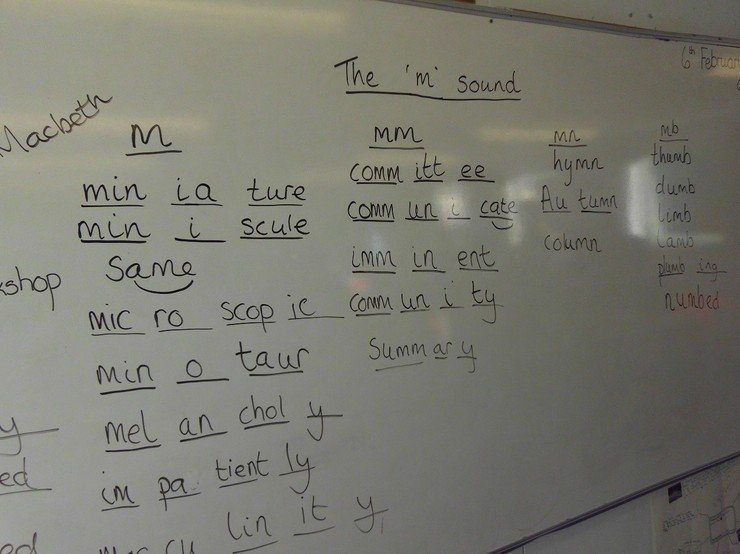 The 'm' sound
6th Februar
Macbeth
M
min ia ture
min i scule
Same
mic ro scop ic
min o taur
mel an chol y
im pa tient ly
lin it y
mm
comm itt ee
comm un i cate
imm in ent
comm un i ty
summ ar y
mn
hymn
Au tumn
column
mb
thumb
dumb
limb
lamb
plumb ing
numbed
kshop
y
ed
ed